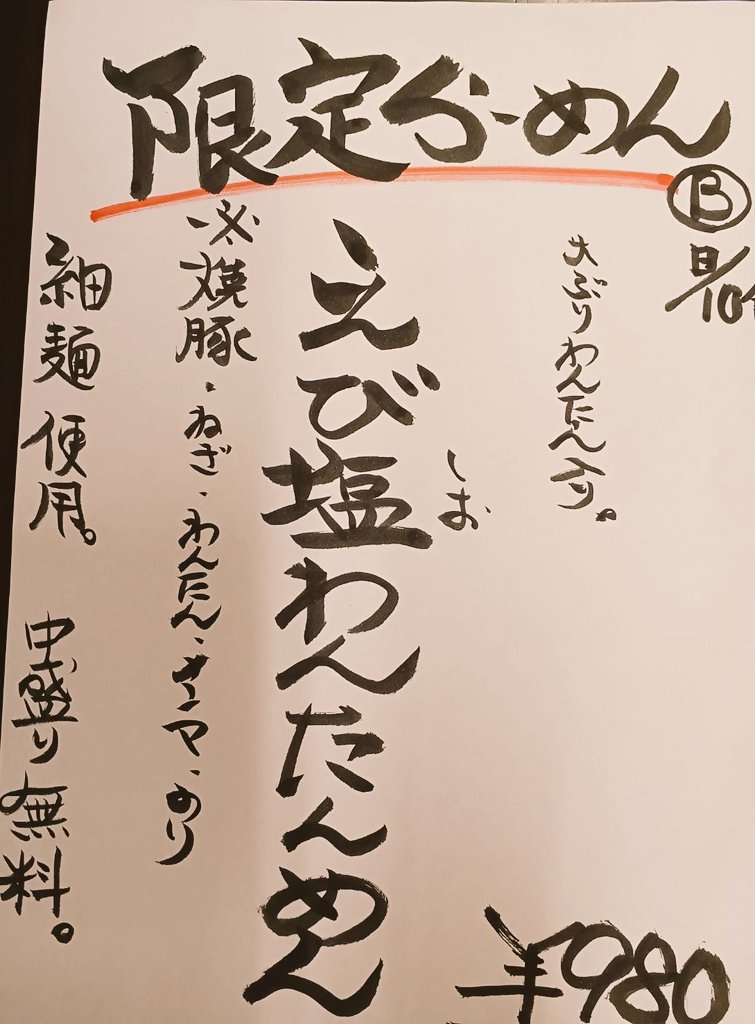 限定らーめん
Ⓑ
日/10
大ぶりわんたん入り。
しお
えび塩わんたんめん
※焼豚・ねぎ・わんたん・メンマ・のり
細麺使用。 中盛り無料。
¥980